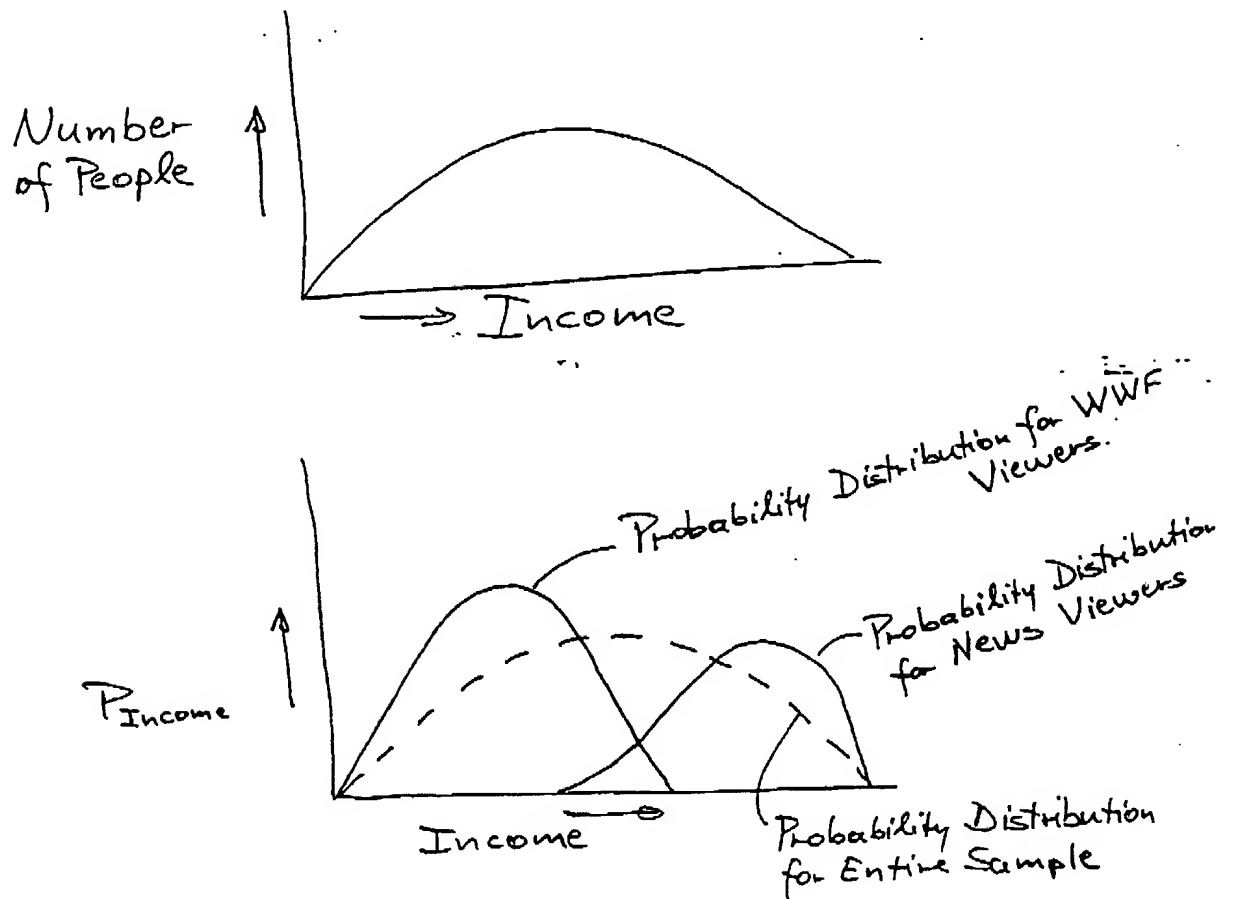 Number
of People
Income
Probability Distribution for WWF
Viewers.
Probability Distribution
for News Viewers
P Income
Income
Probability Distribution
for Entire Sample